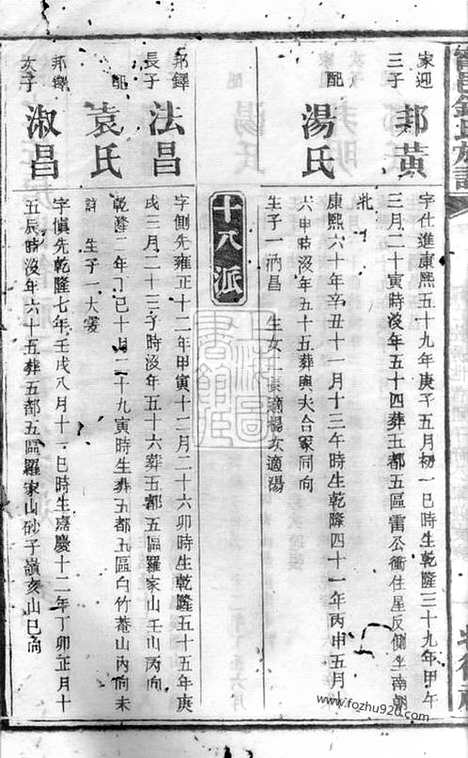 家迎
三子
邦黄
字仕進康熙五十九年庚子五月初一巳時生乾隆三十九年甲午
三月二十寅時沒年五十四葬五都五區雷公衝住屋反側 南朝
北
配
湯氏
康熙六十年辛丑十一月十三午時生乾隆四十一年丙申五月十
六申時沒年五十五葬與夫合冢同向
生子一 昌 生女二長適楊次適湯
十八派
邦鐸
長子
法昌
字側先雍正十二年甲寅十二月二十六卯時生乾隆五十五年庚
戌三月二十三子時沒年五十六葬五都五區羅家山壬山丙向
配
袁氏
乾隆二年丁巳十月二十九寅時生葬五都五區白竹菴山丙向未
詳 生子一大宴
邦鐸
次子
淑昌
字慎先乾隆七年壬戌八月十一巳時生嘉慶十二年丁卯正月十
五辰時沒年六十五葬五都五區羅家山砂子嶺亥山巳向
www.fozhu920.com